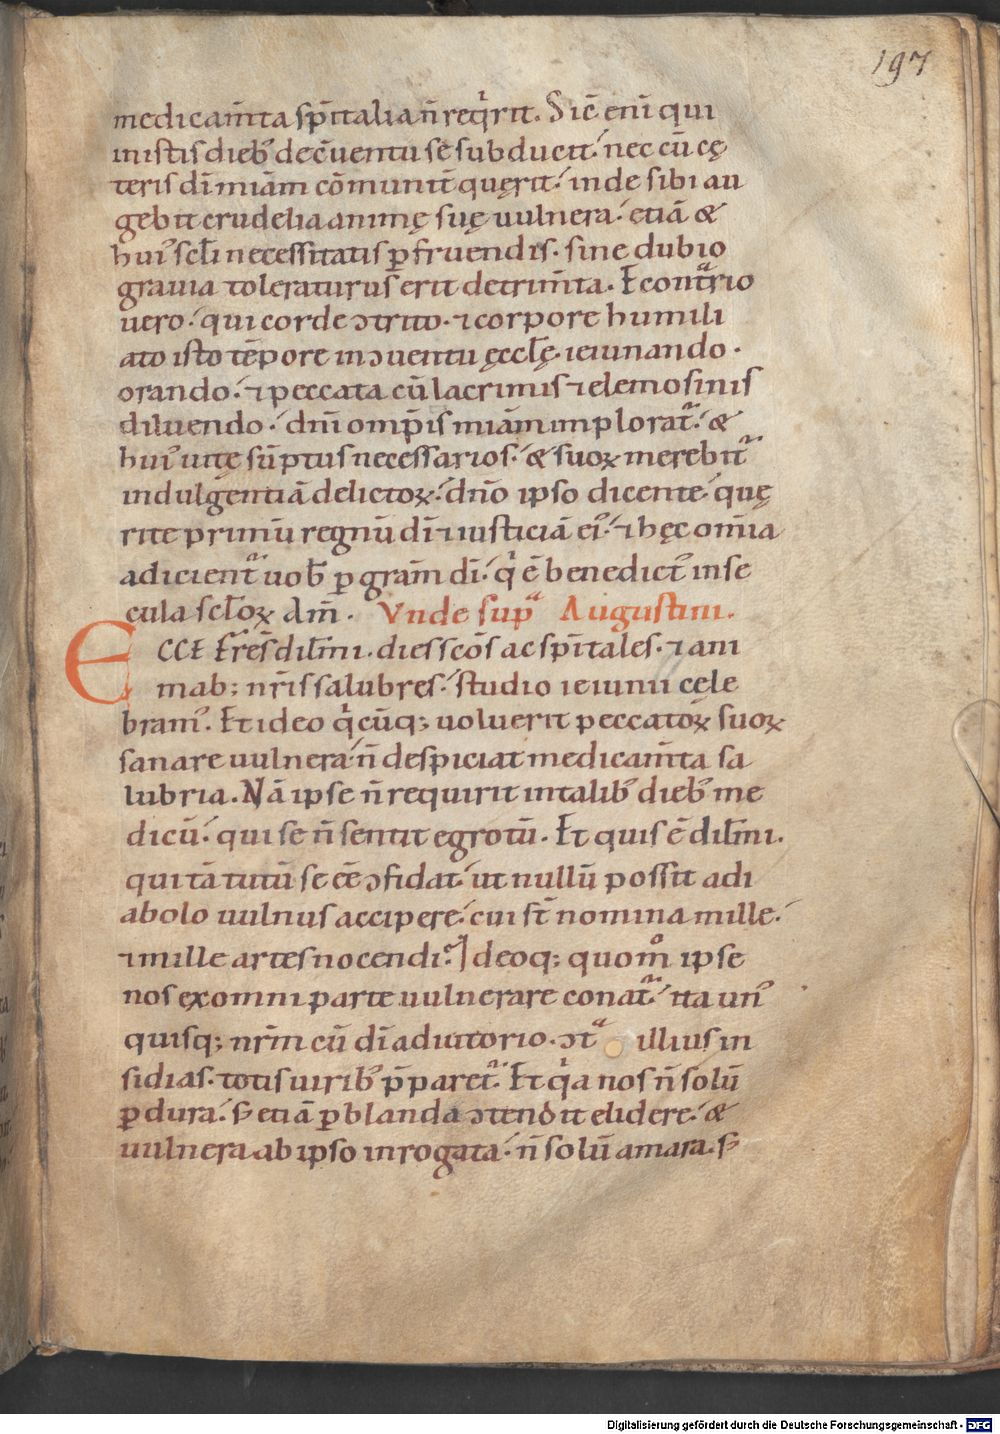 197
medicam̄ta sp̄italia n̄ reqͥrit. Sic̄ enī qui
in istis dieb᾽ de ꝯventu se subducit. nec cū cę
teris dī miām cōmunit̄ quęrit. inde sibi au
gebit crudelia animę suę uulnera. etiā &
hui᾽ scl̄i necessitatis ꝑfruendis. sine dubio
grauia toleraturus erit detrim̄ta. Econtͣrio
uero. qui corde ɔtrito. ⁊ corpore humili
ato isto tēpore in ɔuentu ęccl̄ę. ieiunando.
orando. ⁊ peccata cū lacrimis ⁊ elemosinis
diluendo. dn̄i omp̄is miām implorat᷑. &
hui᾽ uitę sūptus necessarios. & suoꝝ merebit᷑
indulgentiā delictoꝝ. dn̄o ipso dicente. quę
rite primū regnū dī ⁊ iusticiā ei᾽. ⁊ hęc om̄ia
adicient᷑ uob̄ ꝑ grām dī. qͥ ē benedict᾽ in se
cula scl̄oꝝ Am̄. Vnde supͣ Augustini.
ECCE frēs dil̄mi. dies scōs ac sp̄itales. ⁊ ani
mab; nr̄is salubres. studio ieiunii cęle
bram᾽. Et ideo qͥcūq; uoluerit peccatoꝝ suoꝝ
sanare uulnera. n̄ despiciat medicam̄ta sa
lubria. Nā ipse n̄ requirit in talib᾽ dieb᾽ me
dicū. qui se n̄ sentit egrotū. Et quis ē dil̄mi.
qui tā tutū se eē ɔfidat. ut nullū possit a di
abolo uulnus accipere. cui st̄ nomina mille.
⁊ mille artes nocendi. Ideoq; quom̊ ipse
nos ex omni parte uulnerare conat᷑. ita un᾽
quisq; nr̄m cū dī adiutorio. ɔtͣ illius in
sidias. totis uirib᾽ p̄paret᷑. Et qͥa nos n̄ solū
ꝑ dura. ꝭ etiā ꝑ blanda ɔtendit elidere. &
uulnera ab ipso inrogata. n̄ solū amara. ꝭ
Digitalisierung gefördert durch die Deutsche Forschungsgemeinschaft - DFG